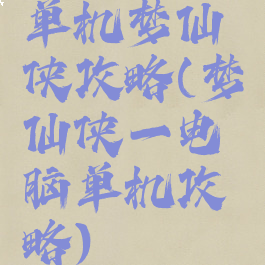 单机梦仙
侠攻略(梦
仙侠一电
脑单机攻
略)